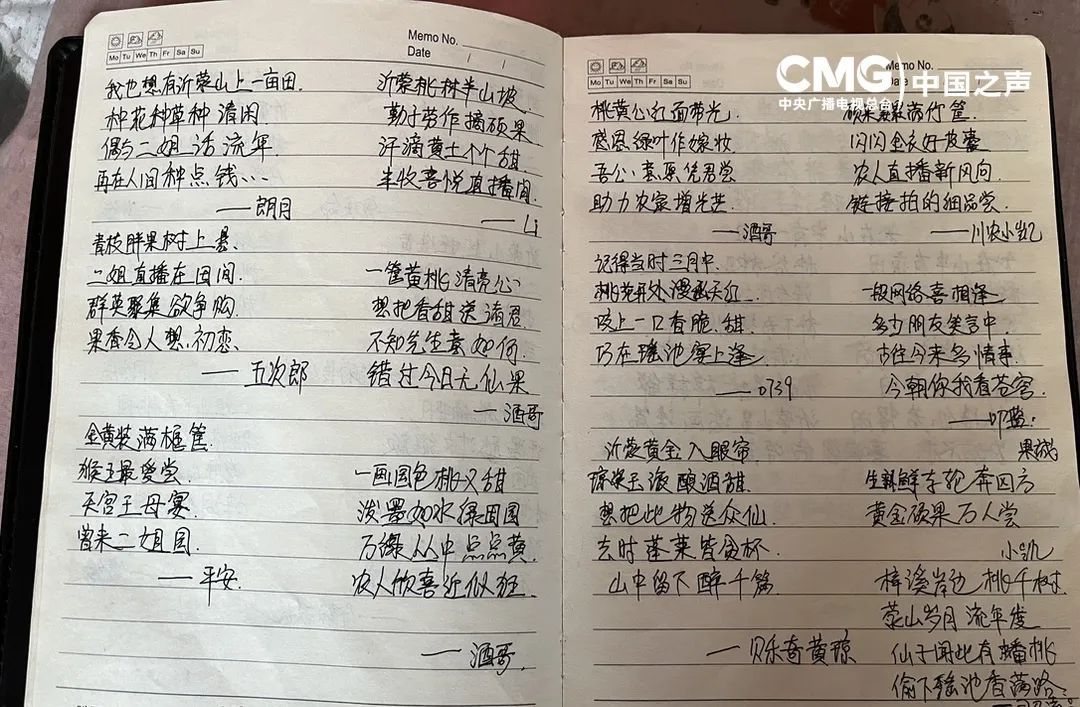 Memo No.
Mo Tu We Th Fr Sa Su
Date / /
我也想有沂蒙山上一亩田.
种花种草种清闲
偶与二姐话流年.
再在人间种点钱...
——朗月
沂蒙桃林半山坡
勤于劳作摘硕果
汗滴黄土个个甜
丰收喜悦直播间.
——Li
青枝胖果树上悬、
二姐直播在田间.
群英聚集欲争购
果香令人想初恋.
——五次郎
一筐黄桃清亮心
想把香甜送诸君
不知先生意如何.
错过今日无仙果
——酒哥
金黄装满框筐.
猴王最爱尝.
天宫王母宴.
曾来二姐园.
——平安.
一画国色桃又甜
泼墨如水绿田园
万绿丛中点点黄.
农人欣喜近似狂.
——酒哥.
Memo No.
Mo Tu We Th Fr Sa Su
Date
CMG 中国之声
中央广播电视总台
桃黄公红面带光.
感恩绿叶作嫁妆
助力农家增光芒
——酒哥
硕果累累落竹筐.
闪闪金衣好皮囊
农人直播新风向.
链接拍的细品尝.
——川农小凯
记得当时三月中.
桃花开处漫
咬上一口香脆、甜
巧在瑶池宴上逢.
——0739
一段网络喜相逢
多少朋友笑言中
古往今来多情事.
今朝你我看苍穹.
沂蒙黄金入眼帘
琼浆玉液酿酒甜.
想把此物送众仙.
去时蓬莱皆贪杯.
山中留下醉千篇
——贝乐奇黄琼
果城
生鲜车轮奔四方
黄金硕果万人尝
小凯
梓溪岸边桃千树.
蒙山岁月流年度
仙子闻此有蟠桃
偷下瑶池香满路.